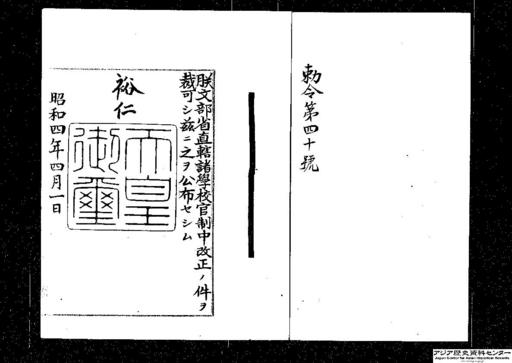 勅令第四十號
朕文部省直轄諸學校官制中改正ノ件ヲ
裁可シ茲ニ之ヲ公布セシム
裕仁
天皇御璽
昭和四年四月一日
アジア歴史資料センター
Japan Center for Asian Historical Records